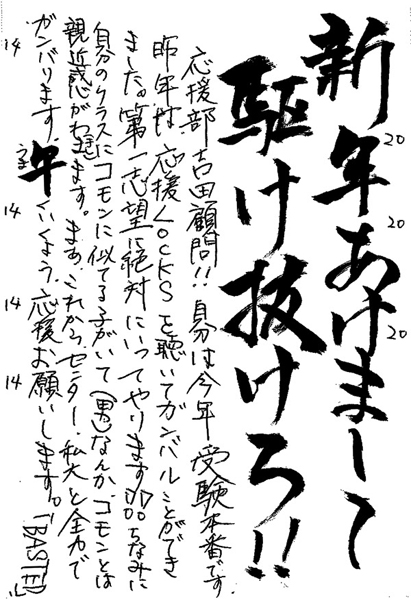 新年あけまして
駆け抜けろ!!
応援部 吉田顧問!! 自分は今年受験本番です。
昨年は、応援LOCKSを聴いてガンバルことができ
ました。第一志望に絶対にいってやります!!ちなみに
自分のクラスにコモンに似てる子がいて(男)なんかコモンとは
親近感がわきます。まあ、これからセンター、私大と全力で
ガンバります。
午くいくよう、応援お願いします。「BASTED」
うま
14
14
14
14
20
20
20